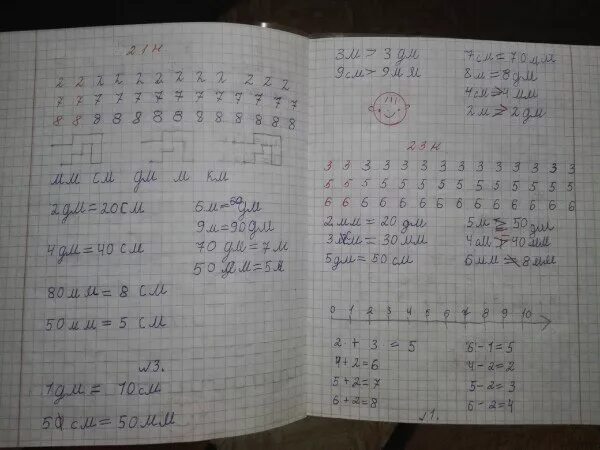 21 н
2 2 2 2 2 2 2 2 2 2 2 2
7 7 7 7 7 7 7 7 7 7 7 7 7
8 8 8 8 8 8 8 8 8 8 8 8 8
мм см дм м км
2 дм = 20 см
6 м = 60 дм
9 м = 90 дм
4 дм = 40 см
70 дм = 7 м
50 дм = 5 м
80 мм = 8 см
50 мм = 5 см
№3.
1 дм = 10 см
5 см = 50 мм
3 м > 3 дм
7 см = 70 мм
9 см > 9 мм
8 м = 8 дм
4 см > 4 мм
2 м > 2 дм
23 н
3 3 3 3 3 3 3 3 3 3 3 3 3 3
5 5 5 5 5 5 5 5 5 5 5 5 5 5
6 6 6 6 6 6 6 6 6 6 6 6 6 6
2 мм = 20 дм
5 м = 50 дм
3 см = 30 мм
4 см > 40 мм
5 дм = 50 см
6 мм = 8 мм
0 1 2 3 4 5 6 7 8 9 10
2 + 3 = 5
6 - 1 = 5
4 + 2 = 6
4 - 2 = 2
5 + 2 = 7
5 - 2 = 3
6 + 2 = 8
6 - 2 = 4
№1.